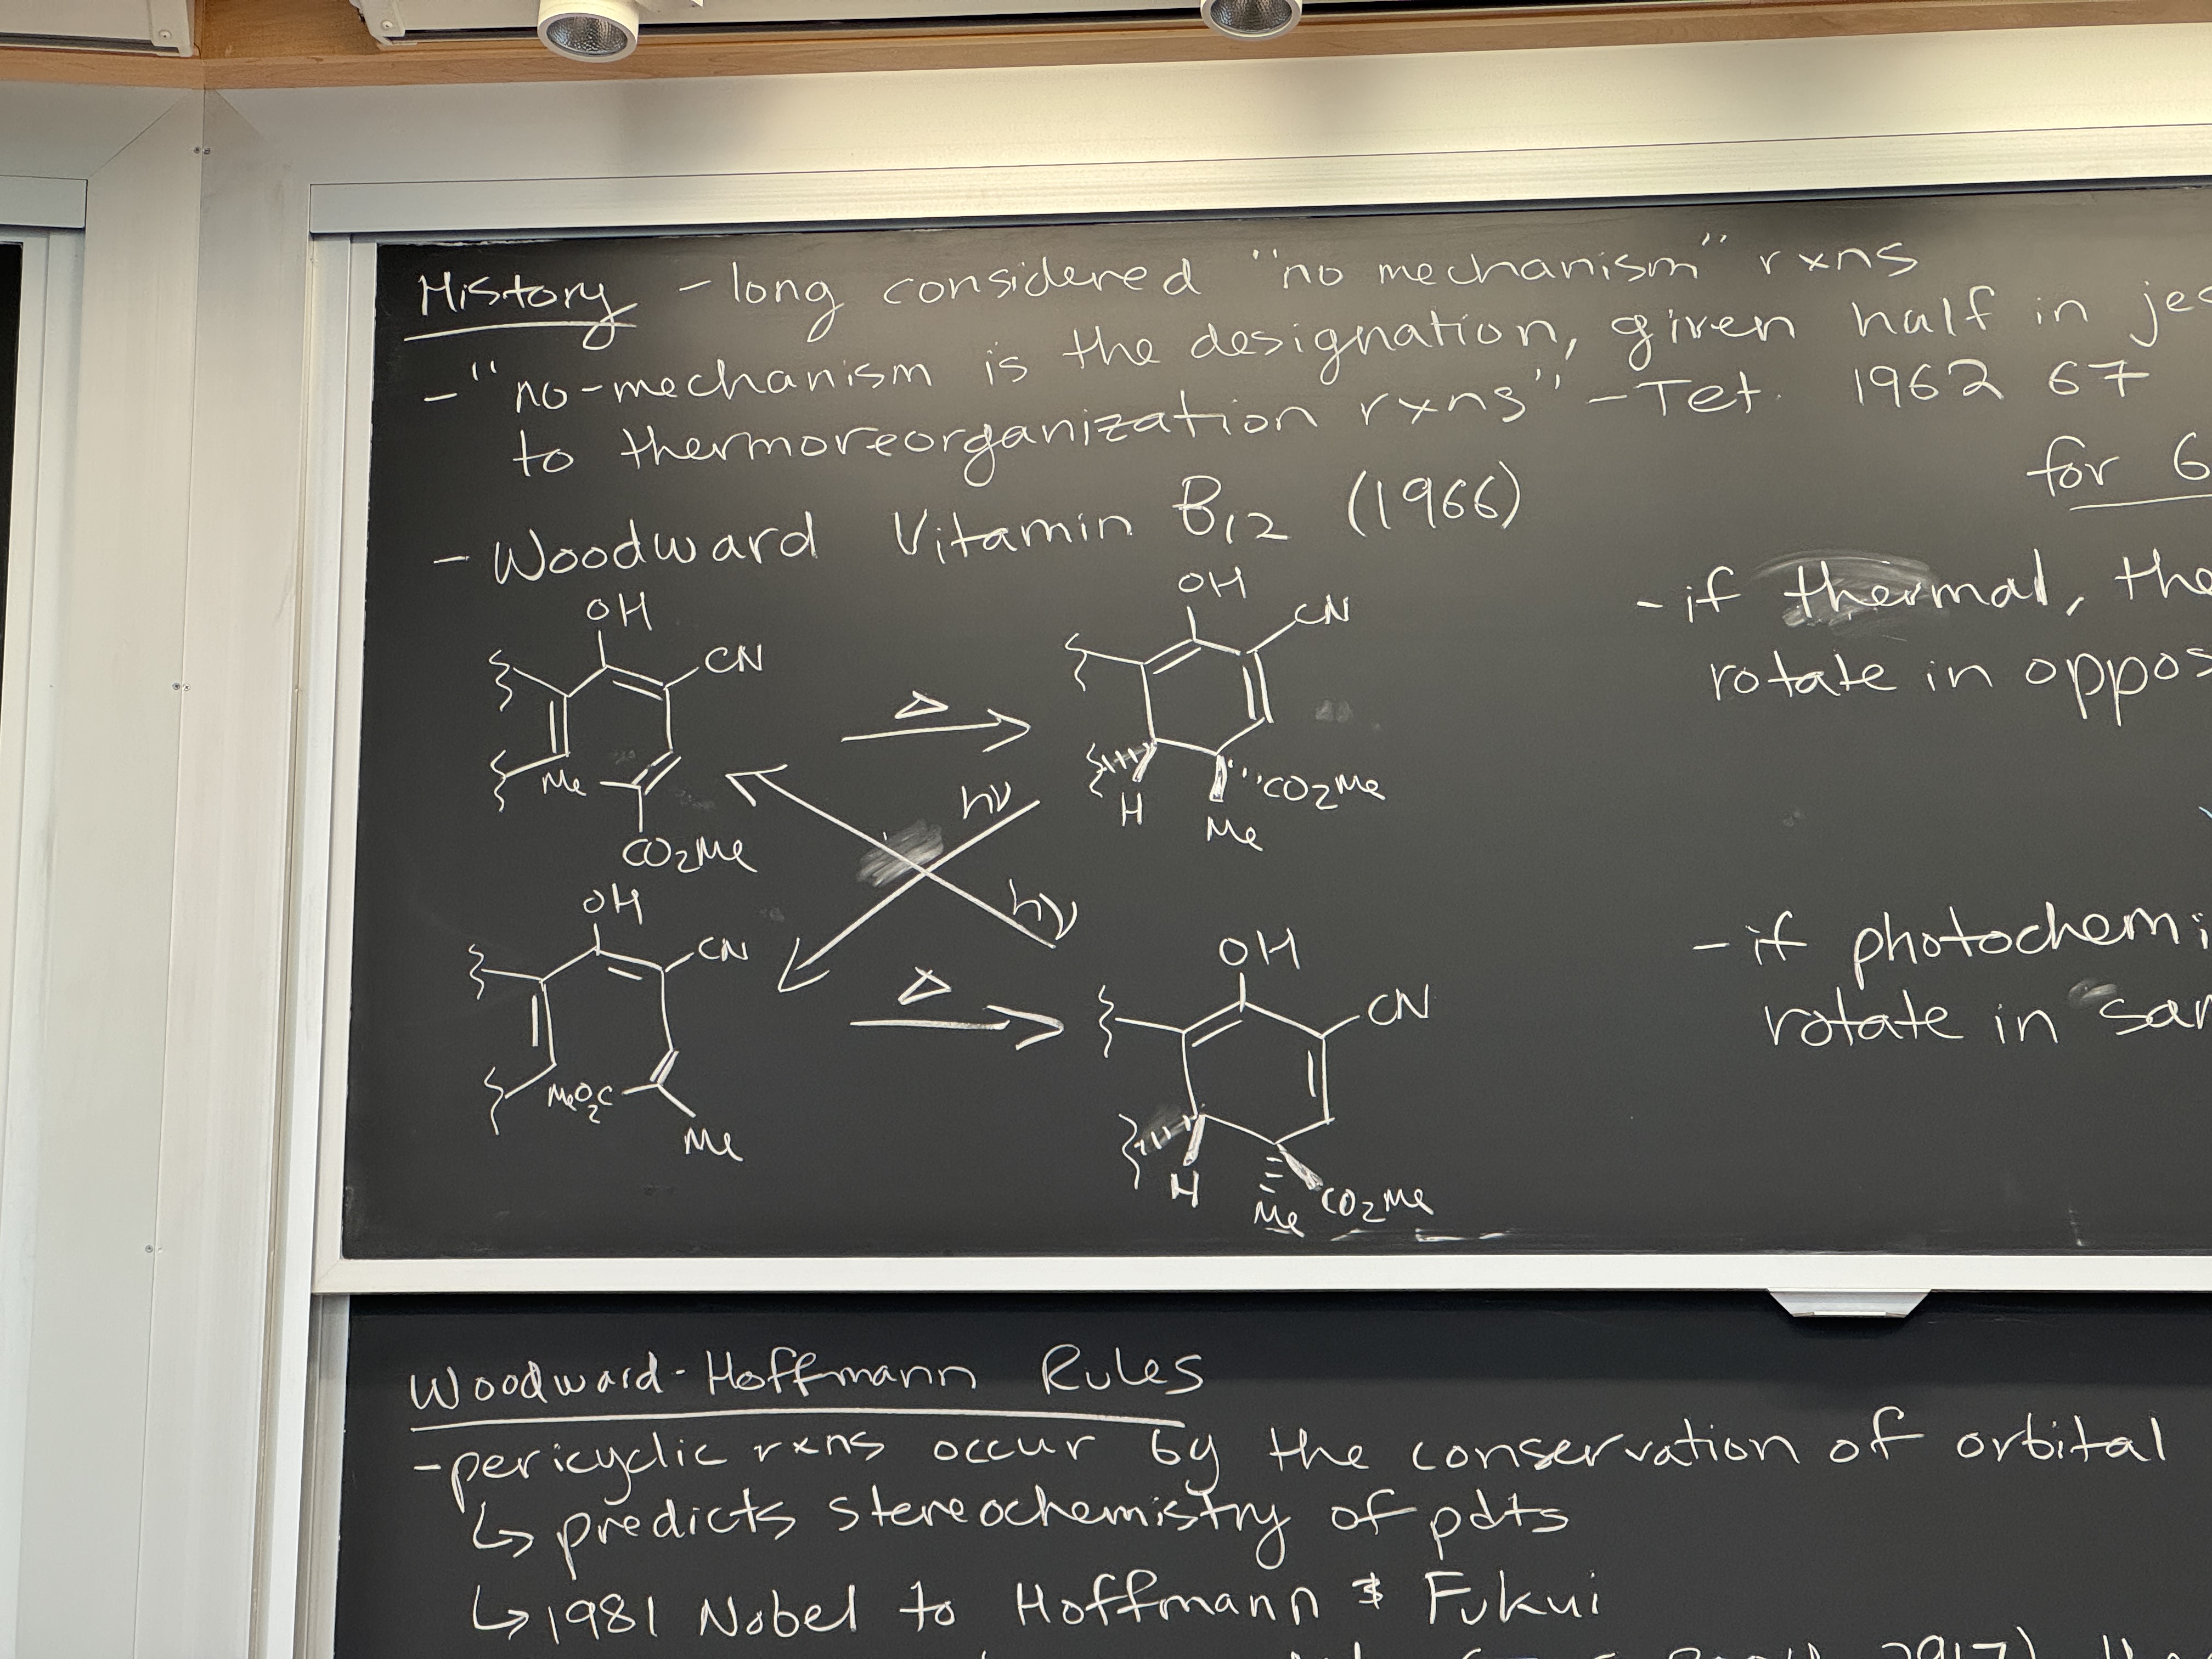 History - long considered "no mechanism" rxns
- "no-mechanism is the designation, given half in
to thermoreorganization rxns" - Tet. 1962 67
for 6
- Woodward Vitamin B12 (1966)
- if thermal,
rotate in
OH
CN
Me
CO2Me
Δ
OH
CN
H
Me
CO2Me
hν
hν
- if
rotate in
OH
CN
MeO2C
Me
Δ
OH
CN
H
Me
CO2Me
Woodward-Hoffmann Rules
- pericyclic rxns occur by the conservation of orbital
↳ predicts stereochemistry of pdts
↳ 1981 Nobel to Hoffmann & Fukui